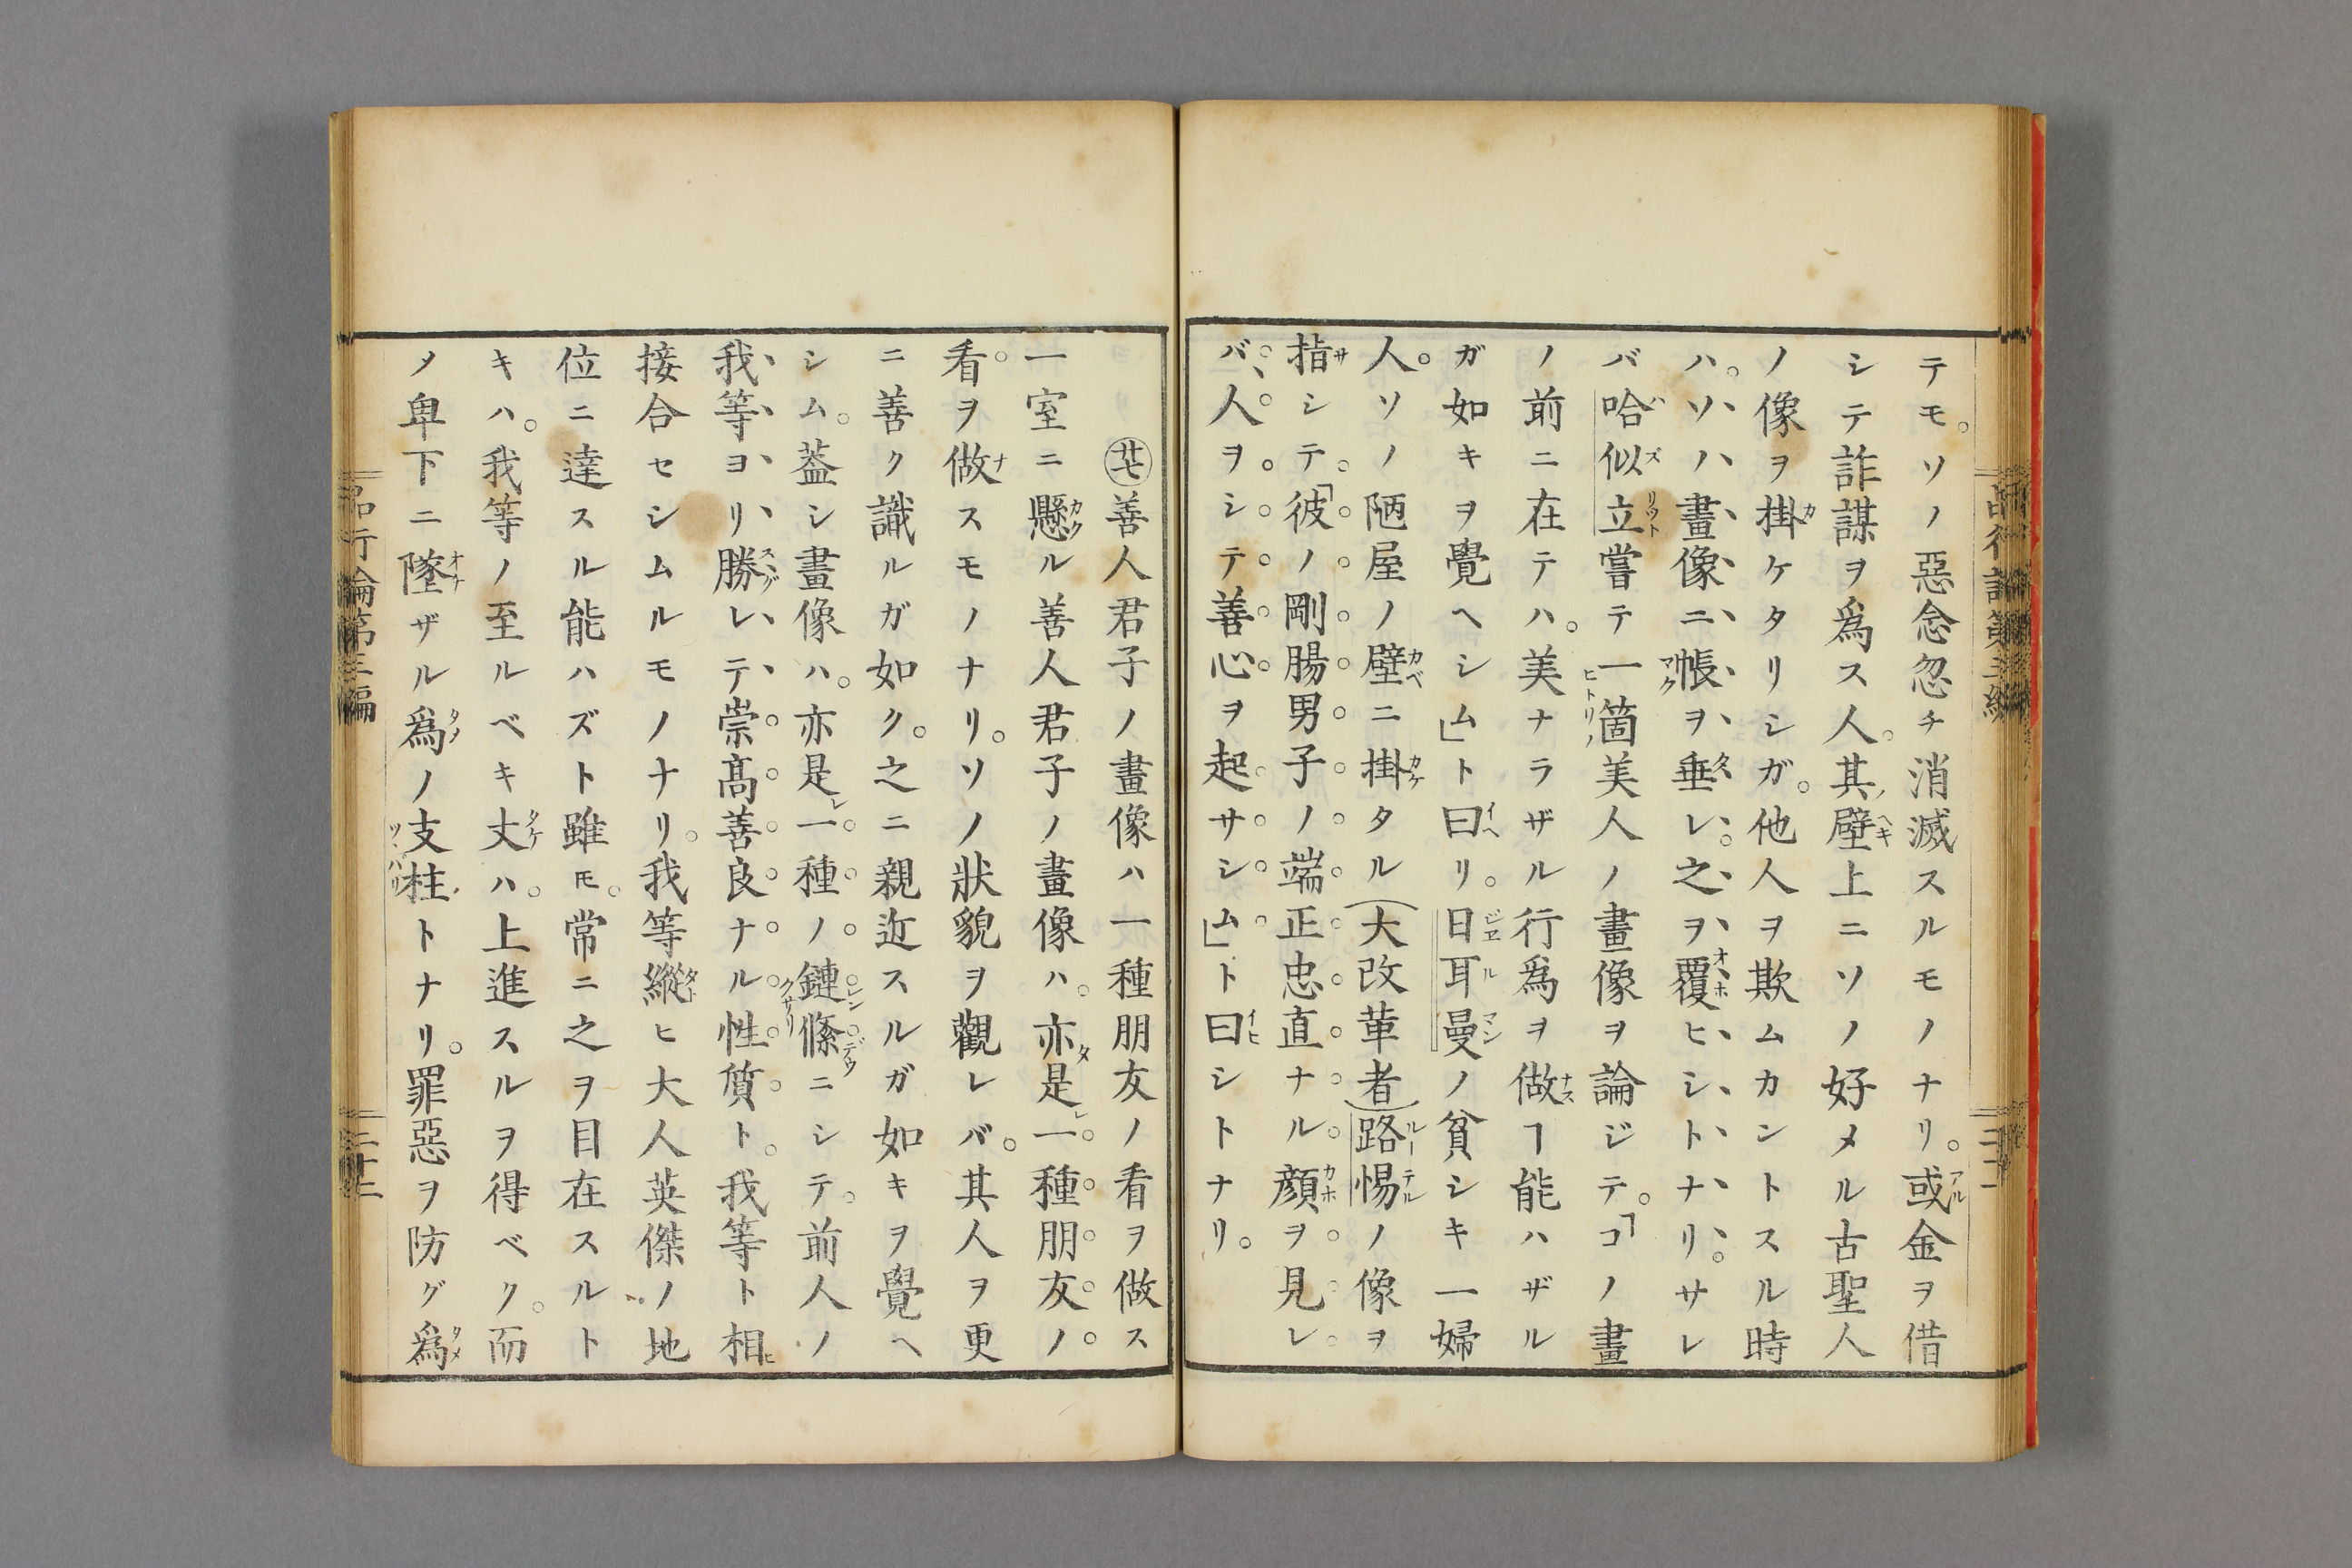 テモ。ソノ惡念忽チ消滅スルモノナリ。或金ヲ借
シテ詐謀ヲ爲ス人。其壁上ニソノ好メル古聖人
ノ像ヲ掛ケタリシガ。他人ヲ欺ムカントスル時
ハ。ソノ畫像ニ帳ヲ垂レ。之ヲ覆ヒシトナリ。サレ
バ哈似立嘗テ一箇美人ノ畫像ヲ論ジテ。「コノ畫
ノ前ニ在テハ。美ナラザル行爲ヲ做ヿ能ハザル
ガ如キヲ覺ヘシム」ト曰リ。日耳曼ノ貧シキ一婦
人。ソノ陋屋ノ壁ニ掛タル(大改革者)路惕ノ像ヲ
指シテ。「彼ノ剛腸男子ノ端正忠直ナル顔ヲ見レ
バ、人ヲシテ善心ヲ起サシム」ト曰シトナリ。
品行論第三編
二十二
㊆善人君子ノ畫像ハ一種朋友ノ看ヲ做ス
一室ニ懸ル善人君子ノ畫像ハ。亦是一種朋友ノ
看ヲ做スモノナリ。ソノ狀貌ヲ觀レバ。其人ヲ更
ニ善ク識ルガ如ク。之ニ親近スルガ如キヲ覺ヘ
シム。蓋シ畫像ハ。亦是一種ノ鏈絛ニシテ。前人ノ
我等ヨリ勝レテ崇髙善良ナル性質ト。我等ト相
接合セシムルモノナリ。我等縱ヒ大人英傑ノ地
位ニ達スル能ハズト雖𪜈。常ニ之ヲ目在スルト
キハ。我等ノ至ルベキ丈ハ。上進スルヲ得ベク。而
ノ卑下ニ墜ザル爲ノ支柱トナリ。罪惡ヲ防グ爲